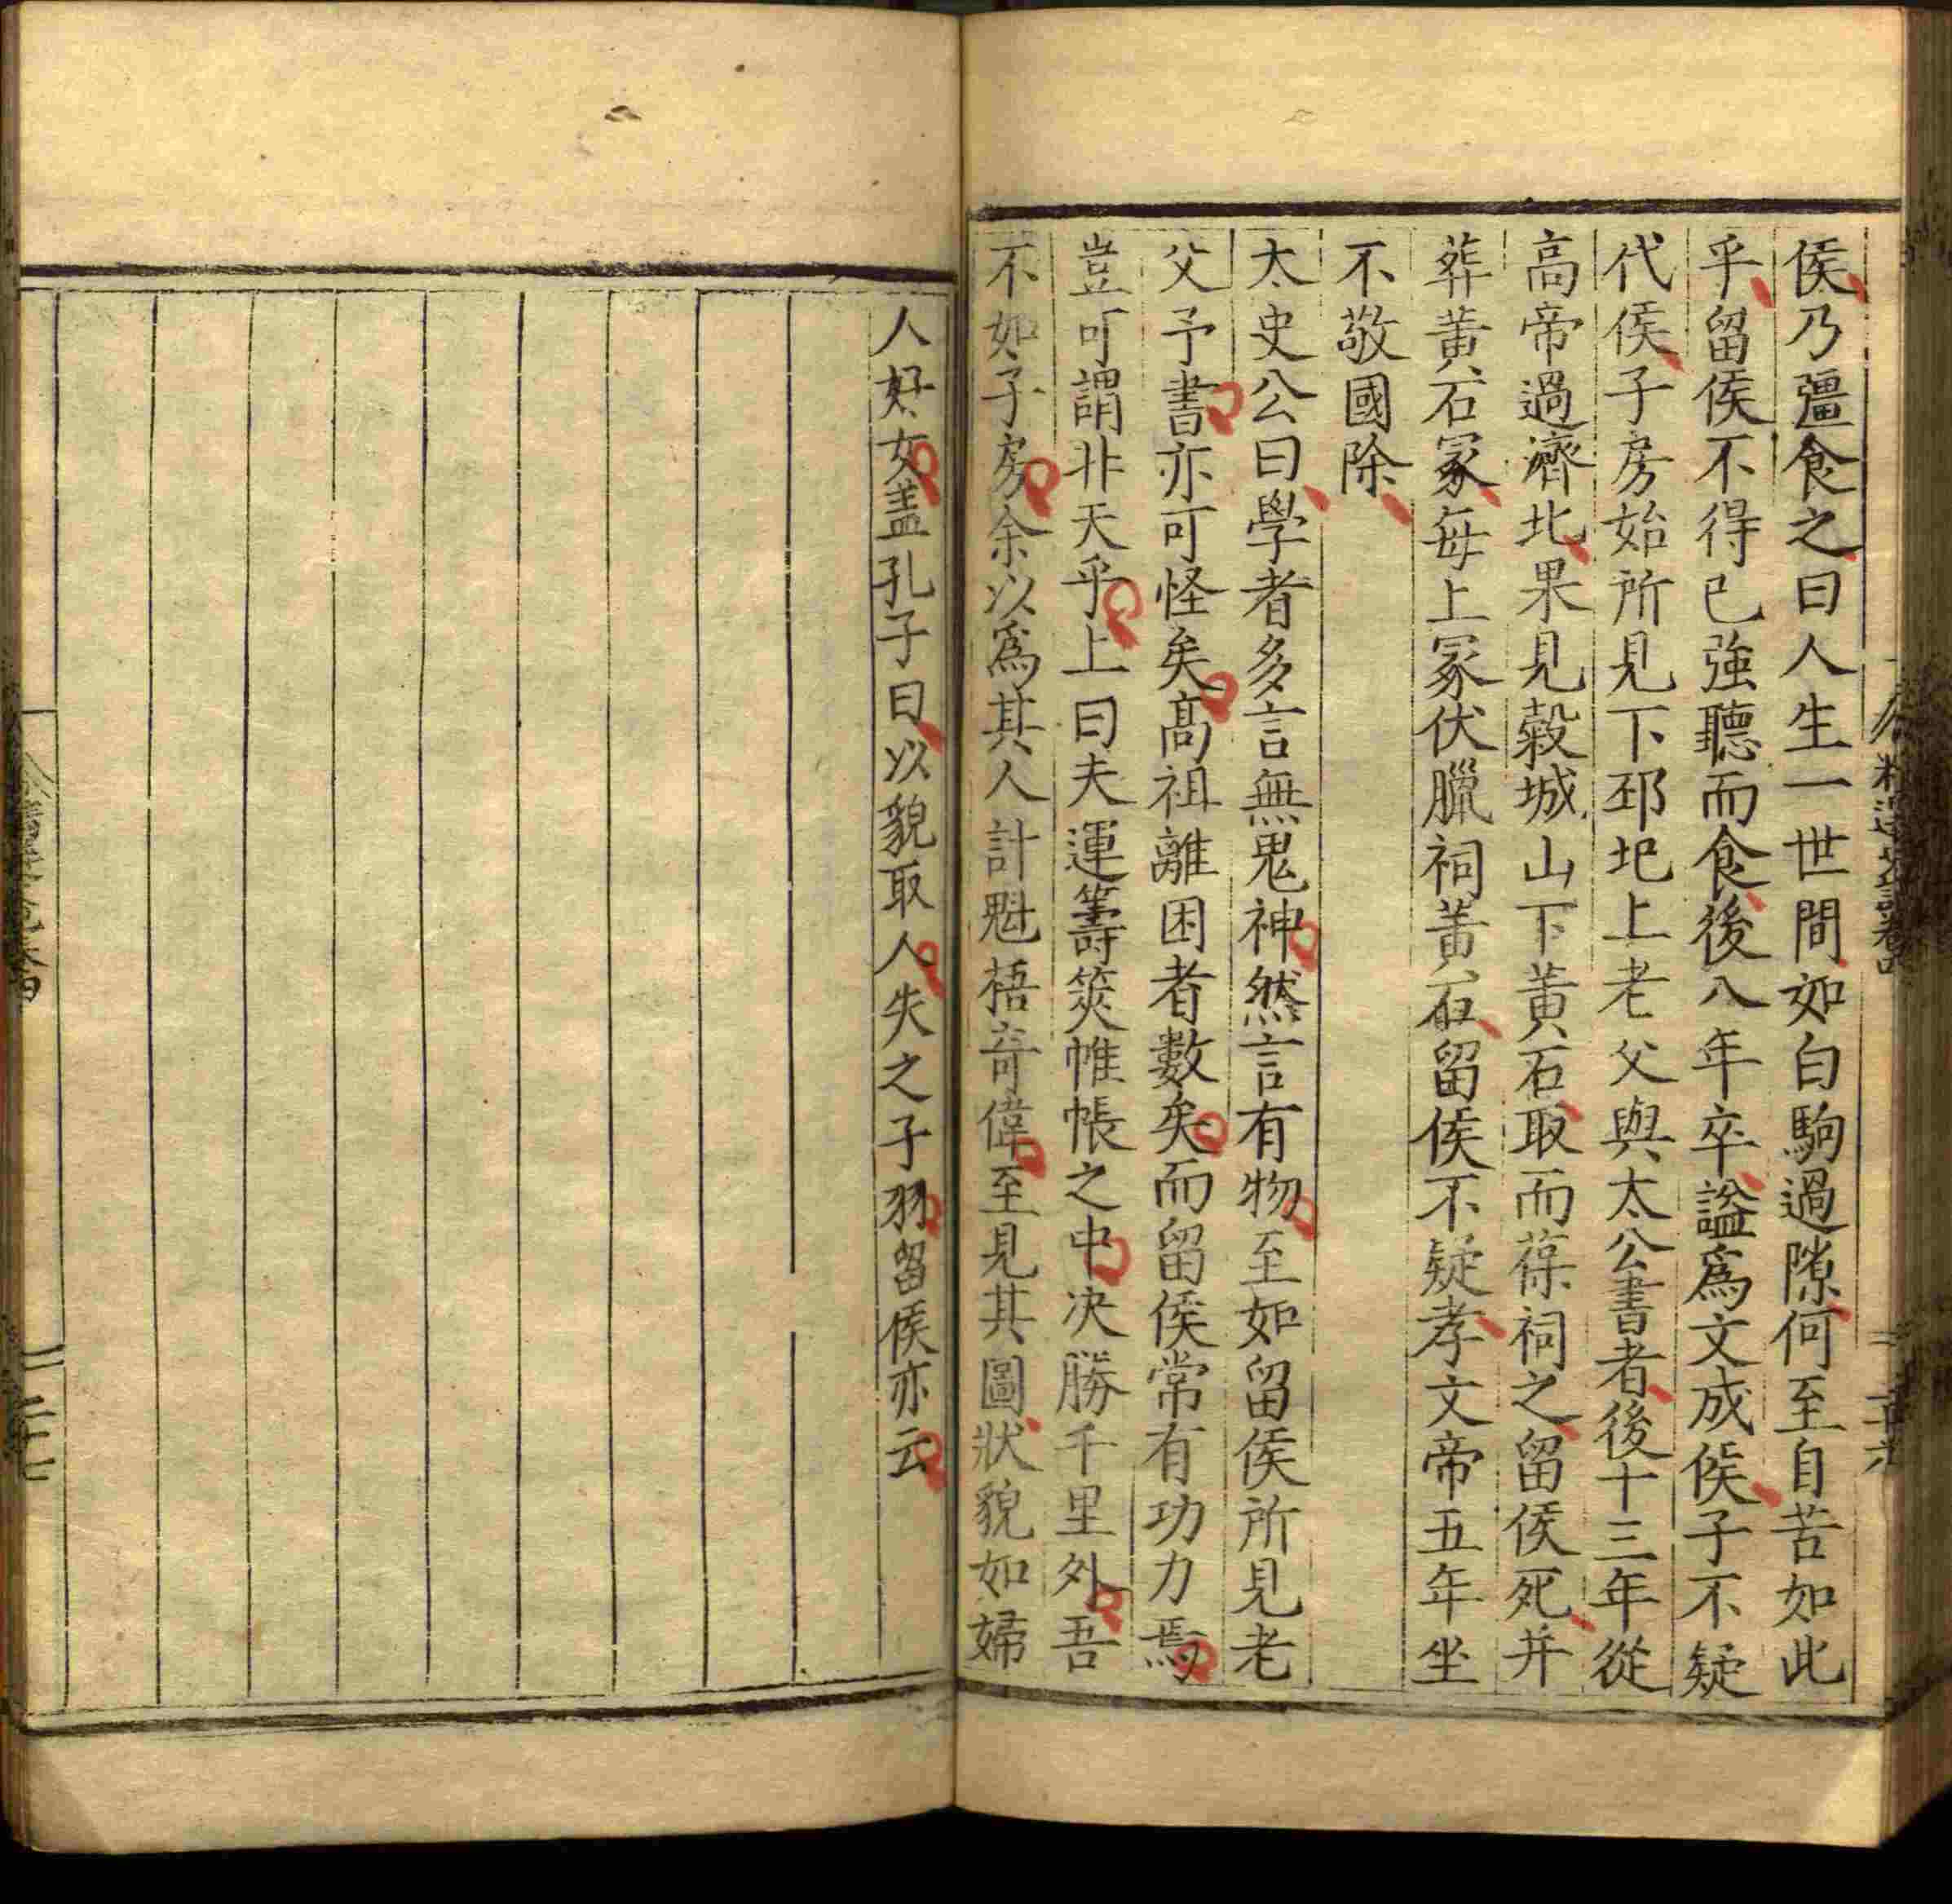 侯乃彊食之曰人生一世間如白駒過隙何至自苦如此
乎留侯不得已強聽而食後八年卒謚爲文成侯子不疑
代侯子房始所見下邳圯上老父與太公書者後十三年從
高帝過濟北果見穀城山下黃石取而葆祠之留侯死并
葬黃石冢每上冢伏臘祠黃石留侯不疑孝文帝五年坐
不敬國除
太史公曰學者多言無鬼神然言有物至如留侯所見老
父予書亦可怪矣高祖離困者數矣而留侯常有功力焉
豈可謂非天乎上曰夫運籌筴帷帳之中决勝千里外吾
不如子房余以爲其人計魁梧奇偉至見其圖狀貌如婦
人好女蓋孔子曰以貌取人失之子羽留侯亦云
二十七